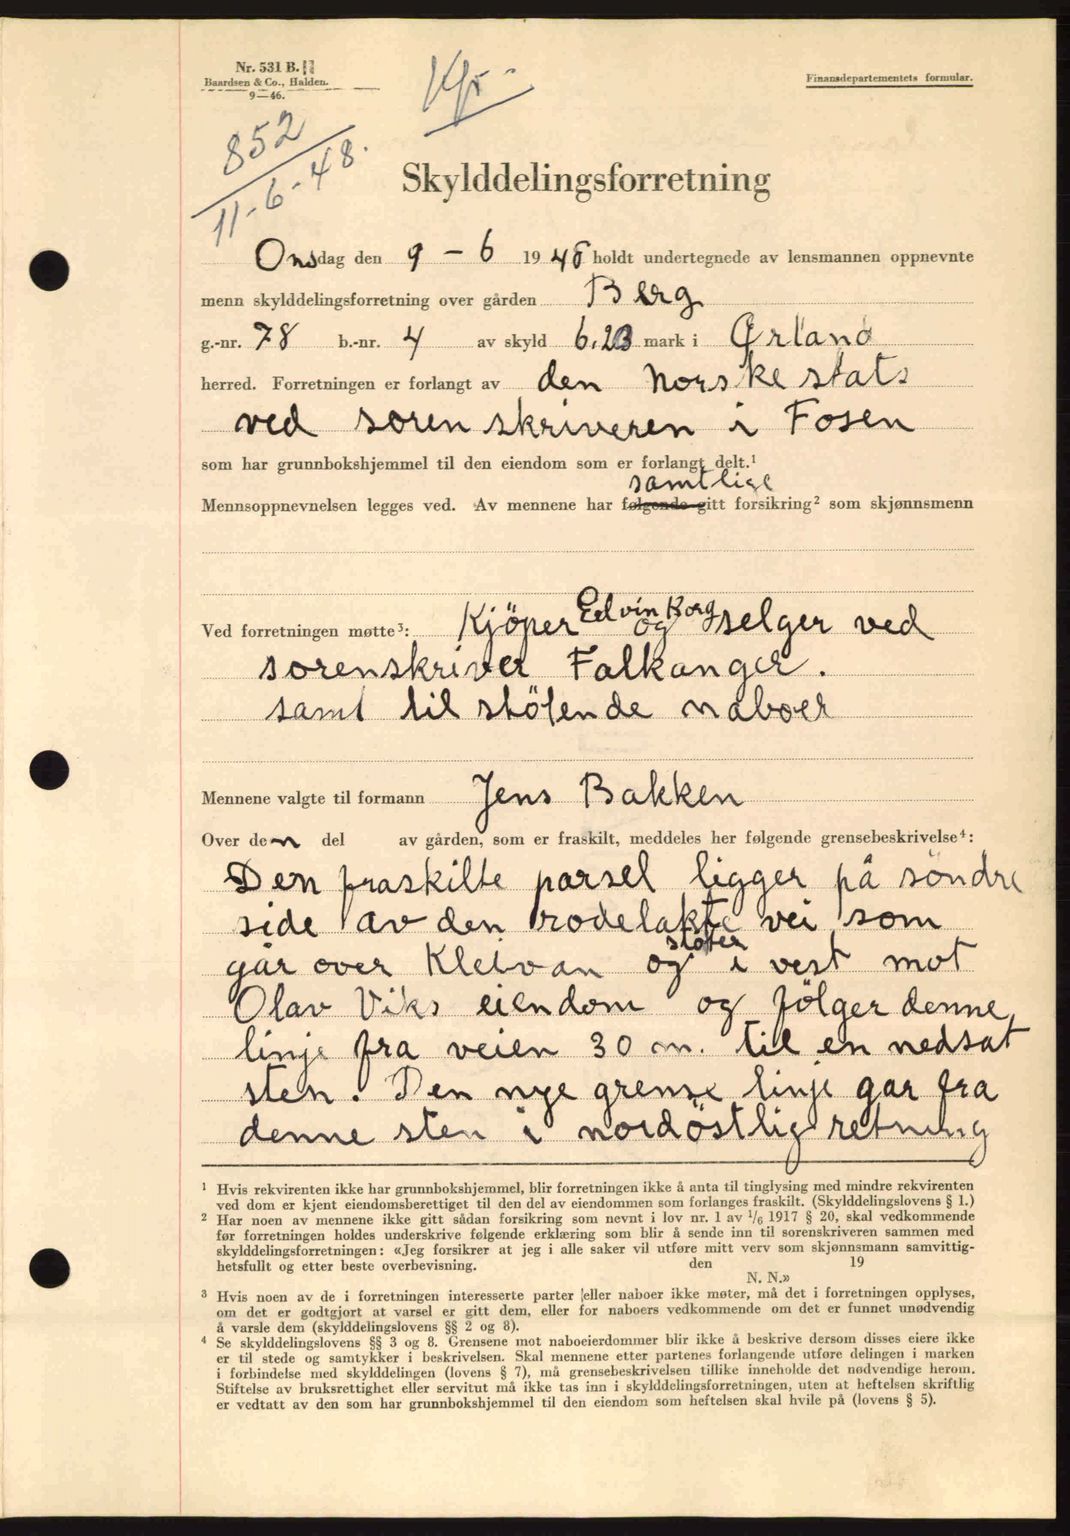 Nr. 531 B.
Baardsen & Co., Halden.
9—46.
Finansdepartementets formular.
852
11-6-48.
Skylddelingsforretning
Onsdag den 9 - 6 1948 holdt undertegnede av lensmannen oppnevnte
menn skylddelingsforretning over gården Berg
g.-nr. 78 b.-nr. 4 av skyld 6.23 mark i Ørland
herred. Forretningen er forlangt av den Norske stats
ved sorenskriveren i Fosen
som har grunnbokshjemmel til den eiendom som er forlangt delt.¹
samtlige
Mennsoppnevnelsen legges ved. Av mennene har følgende gitt forsikring² som skjønnsmenn
Ved forretningen møtte³: Kjöper Edvin Borg og selger ved
sorenskriver Falkanger.
samt til stötende naboer
Mennene valgte til formann Jens Bakken
Over den del av gården, som er fraskilt, meddeles her følgende grensebeskrivelse⁴:
Den fraskilte parsel ligger på söndre
side av den rodelakte vei som
går over Kleivan og støter i vest mot
Olav Viks eiendom og fölger denne
linje fra veien 30 m. til en nedsat
sten. Den nye grense linje gar fra
denne sten i nordöstlig retning
¹ Hvis rekvirenten ikke har grunnbokshjemmel, blir forretningen ikke å anta til tinglysing med mindre rekvirenten
ved dom er kjent eiendomsberettiget til den del av eiendommen som forlanges fraskilt. (Skylddelingslovens § 1.)
² Har noen av mennene ikke gitt sådan forsikring som nevnt i lov nr. 1 av 1/6 1917 § 20, skal vedkommende
før forretningen holdes underskrive følgende erklæring som blir å sende inn til sorenskriveren sammen med
skylddelingsforretningen: «Jeg forsikrer at jeg i alle saker vil utføre mitt verv som skjønnsmann samvittig-
hetsfullt og etter beste overbevisning. den 19
N. N.»
³ Hvis noen av de i forretningen interesserte parter eller naboer ikke møter, må det i forretningen opplyses,
om det er godtgjort at varsel er gitt dem, eller for naboers vedkommende om det er funnet unødvendig
å varsle dem (skylddelingslovens §§ 2 og 8).
⁴ Se skylddelingslovens §§ 3 og 8. Grensene mot naboeierdommer blir ikke å beskrive dersom disses eiere ikke
er til stede og samtykker i beskrivelsen. Skal mennene etter partenes forlangende utføre delingen i marken
i forbindelse med skylddelingen (lovens § 7), må grensebeskrivelsen tillike inneholde det nødvendige herom.
Stiftelse av bruksrettighet eller servitut må ikke tas inn i skylddelingsforretningen, uten at heftelsen skriftlig
er vedtatt av den som har grunnbokshjemmel til den eiendom som heftelsen skal hvile på (lovens § 5).